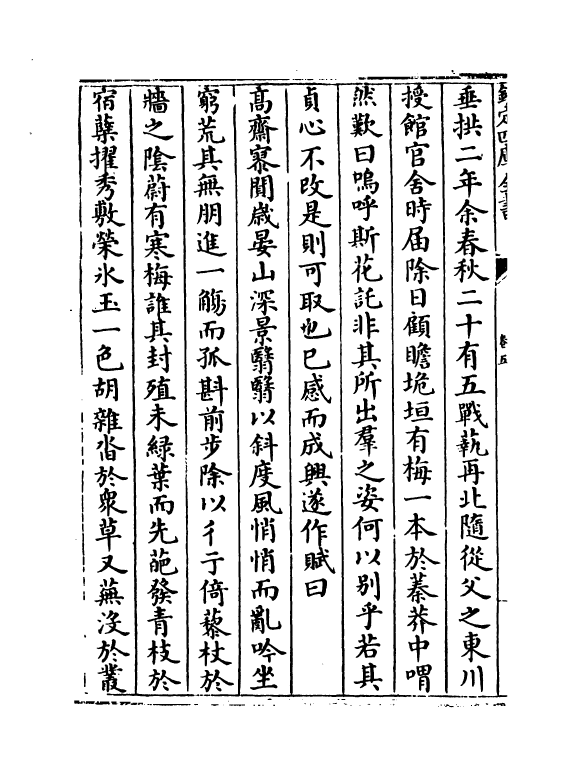 欽定四庫全書
卷五
垂拱二年余春秋二十有五戰蓺再北隨從父之東川
授館官舍時届除日顧瞻垝垣有梅一本於蓁莽中喟
然歎曰嗚呼斯花託非其所出羣之姿何以别乎若其
貞心不改是則可取也已感而成興遂作賦曰
髙齋寥闃歲晏山深景翳翳以斜度風悄悄而亂吟坐
窮荒其無朋進一觴而孤斟前步除以彳亍倚藜杖於
牆之陰蔚有寒梅誰其封殖未緑葉而先葩發青枝於
宿蘖擢秀敷榮氷玉一色胡雜沓於衆草又蕪沒於叢